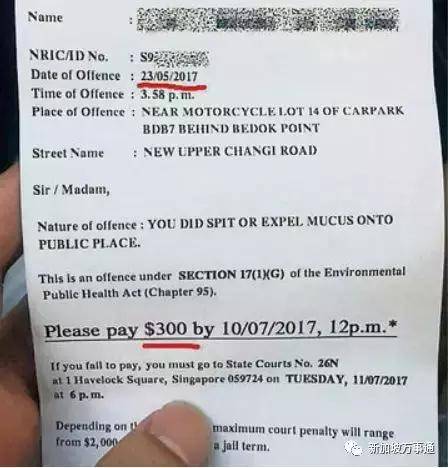 Name :
NRIC/ID No. : S9
Date of Offence : 23/05/2017
Time of Offence : 3.58 p.m.
Place of Offence : NEAR MOTORCYCLE LOT 14 OF CARPARK
BDB7 BEHIND BEDOK POINT
Street Name : NEW UPPER CHANGI ROAD
Sir / Madam,
Nature of offence : YOU DID SPIT OR EXPEL MUCUS ONTO
PUBLIC PLACE.
This is an offence under SECTION 17(1)(G) of the Environmental
Public Health Act (Chapter 95).
Please pay $300 by 10/07/2017, 12p.m.*
If you fail to pay, you must go to State Courts No. 26N
at 1 Havelock Square, Singapore 059724 on TUESDAY, 11/07/2017
at 6 p.m.
Depending on maximum court penalty will range
from $2,000 a jail term.
新加坡万事通